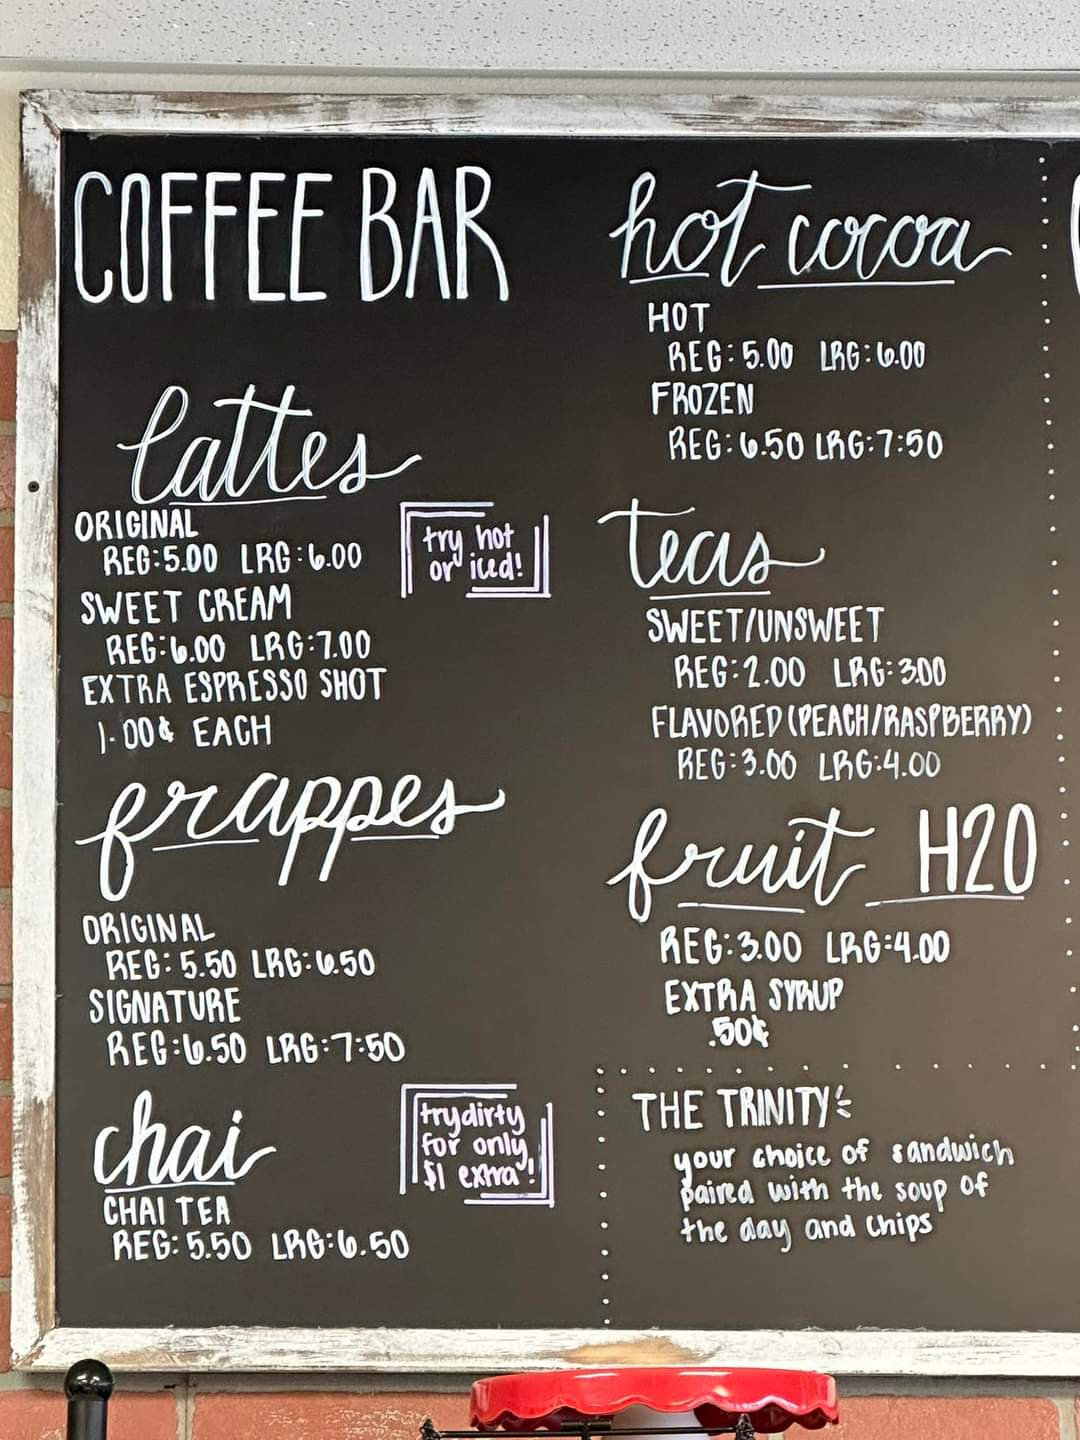 COFFEE BAR
lattes
ORIGINAL
REG: 5.00 LRG: 6.00
try hot
or iced!
SWEET CREAM
REG: 6.00 LRG: 7.00
EXTRA ESPRESSO SHOT
1.00¢ EACH
frappes
ORIGINAL
REG: 5.50 LRG: 6.50
SIGNATURE
REG: 6.50 LRG: 7:50
chai
try dirty
for only
$1 extra!
CHAI TEA
REG: 5.50 LRG: 6.50
hot cocoa
HOT
REG: 5.00 LRG: 6.00
FROZEN
REG: 6.50 LRG: 7:50
teas
SWEET/UNSWEET
REG: 2.00 LRG: 3.00
FLAVORED (PEACH/RASPBERRY)
REG: 3.00 LRG: 4.00
fruit H2O
REG: 3.00 LRG: 4.00
EXTRA SYRUP
.50¢
THE TRINITY
your choice of sandwich
paired with the soup of
the day and chips